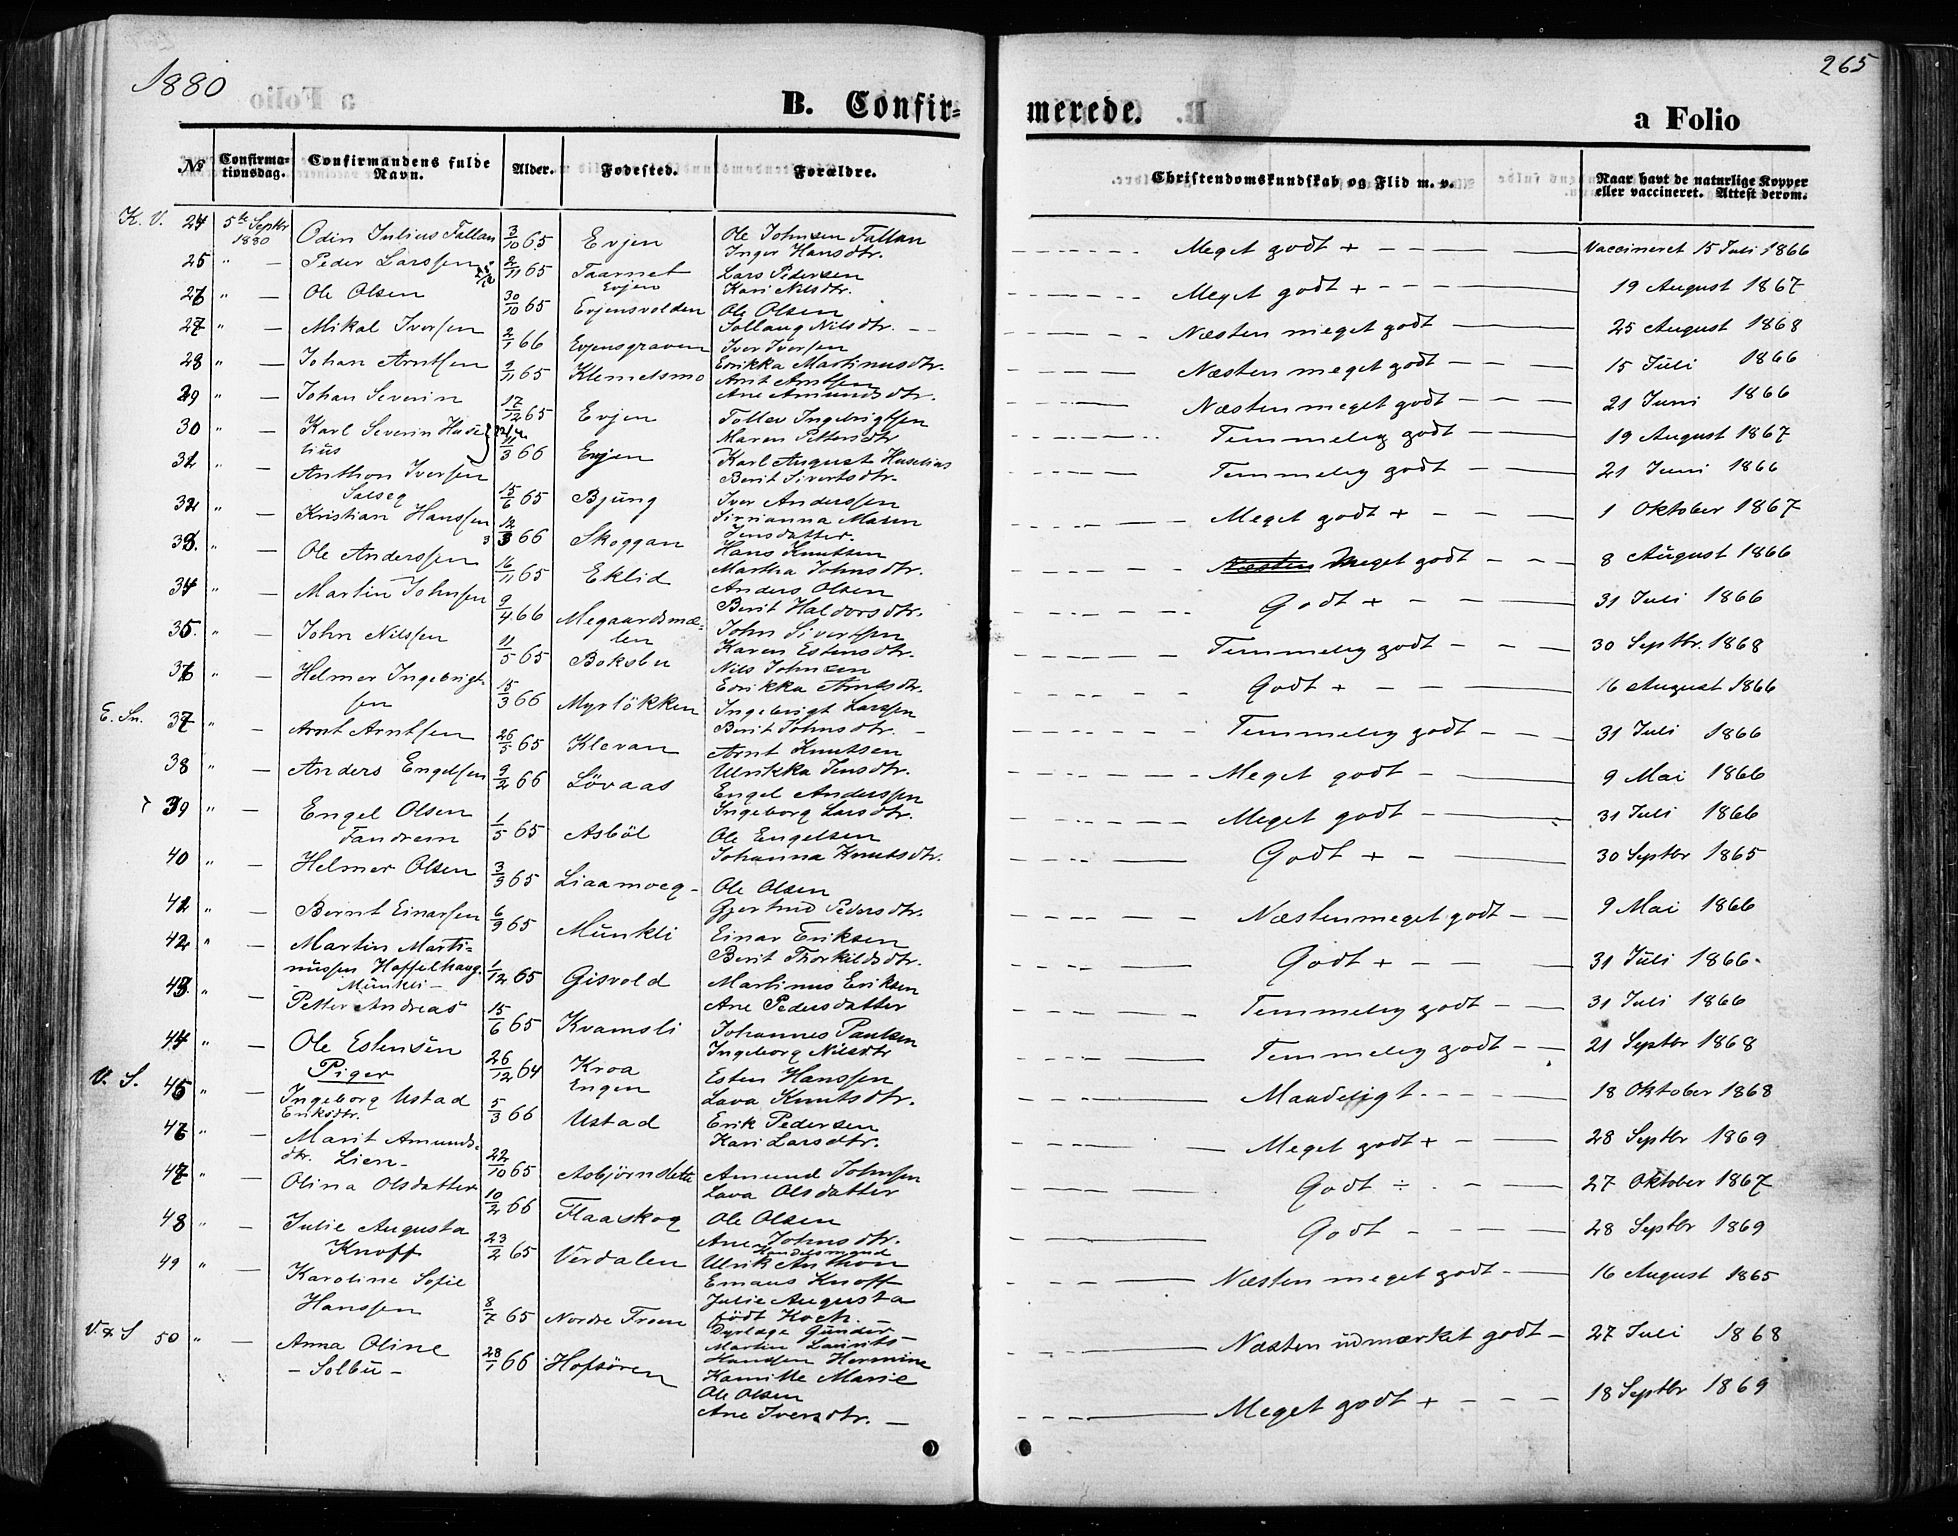 1880
265
B. Confirmerede.
a Folio
№ | Confirmationsdag. | Confirmandens fulde Navn. | Alder. | Fødested. | Forældre. | Christendomskundskab og Flid m. v. | Naar havt de naturlige Kopper eller vaccineret. Attest derom.
K. V. 24 | 5te Septbr 1880 | Odin Julius Fallan | 3/10 65 | Evjen | Ole Johnsen Fallan Inger Hansdtr. | Meget godt + | Vaccineret 15 Juli 1866
25 | " — | Peder Larssen | 2/11 65 | Taarnet Evjen | Lars Pedersen Kari Nilsdtr. | Meget godt + | 19 August 1867
26 | " — | Ole Olsen | 30/10 65 | Evjensvolden | Ole Olsen Sollaug Nilsdtr. | Næsten meget godt | 25 August 1868
27 | " — | Mikal Iversen | 2/1 66 | Evjensgraven | Iver Iversen Erikka Martinusdtr. | Næsten meget godt | 15 Juli 1866
28 | " — | Johan Arntsen | 9/11 65 | Klemetsmo | Arnt Arntsen Ane Amundsdtr. | Næsten meget godt | 21 Juni 1866
29 | " — | Johan Severin | 17/12 65 | Evjen | Toller Ingebrigtsen Maren Pettersdtr | Temmelig godt | 19 August 1867
30 | " — | Karl Severin Huselius | 11/3 66 | Evjen | Karl August Huselius Berit Sivertsdtr. | Temmelig godt | 21 Juni 1866
31 | " — | Anthon Iversen Solseg | 15/6 65 | Bjung | Iver Anderssen Sirianna Maren Jensdatter. | Meget godt + | 1 Oktober 1867
32 | " — | Kristian Hanssen | 12/3 66 | Skoggan | Hans Knutsen Martha Johnsdtr. | Næsten Meget godt | 8 August 1866
33. | " — | Ole Anderssen | 16/11 65 | Eklid | Anders Olsen Berit Haldorsdtr. | Godt + | 31 Juli 1866
34 | " — | Martin Johnsen | 9/4 66 | Megaardsmælen | John Sivertsen Karen Estensdtr. | Temmelig godt | 30 Septbr. 1868
35. | " — | John Nilssen | 11/5 65 | Boksbu | Nils Johnsen Erikka Arntsdtr. | Godt + | 16 August 1866
36 | " — | Helmer Ingebrigtsen | 15/3 66 | Myrløkken | Ingebrigt Larssen Berit Johnsdtr. | Temmelig godt | 31 Juli 1866
E. Sn. 37 | " — | Arnt Arntsen | 26/5 65 | Klevan | Arnt Knutsen Ulrikka Jensdtr. | Meget godt | 9 Mai 1866
38 | " — | Anders Engelsen | 9/2 66 | Løvaas | Engel Anderssen Ingeborg Larsdtr. | Meget godt | 31 Juli 1866
39 | " — | Engel Olsen Fandrem | 1/5 65 | Asbøl | Ole Engelsen Johanna Knutsdtr. | Godt + | 30 Septbr 1865
40 | " — | Helmer Olsen | 3/9 65 | Liaamoeg | Ole Olsen Gjertrud Pedersdtr. | Næsten meget godt | 9 Mai 1866
41 | " — | Bernt Einarsen | 6/9 65 | Munkli | Einar Eriksen Berit Thorkildsdtr. | Godt + | 31 Juli 1866
42 | " — | Martin Martinussen Hoffelhaug. Munkli | 1/12 65 | Gisvold | Martinus Eriksen Ane Pedersdatter | Temmelig godt | 31 Juli 1866
43. | " — | Petter Andreas | 15/6 65 | Kvamsli | Johannes Paulsen Ingeborg Nilsdtr | Temmelig godt | 21 Septbr 1868
44 | " — | Ole Estensen | 26/12 64 | Kroa Engen | Esten Hanssen Lava Knutsdtr. | Maadeligt | 18 Oktober 1868
Piger
V. S. 45 | " — | Ingeborg Ustad Eriksdtr. | 5/3 66 | Ustad | Erik Pedersen Kari Larsdtr. | Meget godt + | 28 Septbr 1869
46 | " — | Marit Amundsdtr. Lien | 22/10 65 | Asbjørnslette | Amund Johnsen Lava Olsdatter | Godt ÷ | 27 Oktober 1867
47 | " — | Olina Olsdatter | 10/2 66 | Flaaskog | Ole Olsen Ane Johnsdtr. | Godt | 28 Septbr 1869
48 | " — | Julie Augusta Knoff | 23/2 65 | Verdalen | Handelsmand Ulrik Anthon Emaus Knoff Julie Augusta født Koch. | Næsten meget godt | 16 August 1865
49 | " — | Karoline Sofie Hanssen | 8/7 65 | Nordre Froen | Dyrlæge Gunder Martin Laurits Hanssen Hermine Kamille Marie | Næsten udmærket godt | 27 Juli 1868
V. & S 50 | " — | Anna Oline Solbu | 28/1 66 | Hofsøren | Ole Olsen Ane Iversdtr. | Meget godt + | 18 Septbr 1869